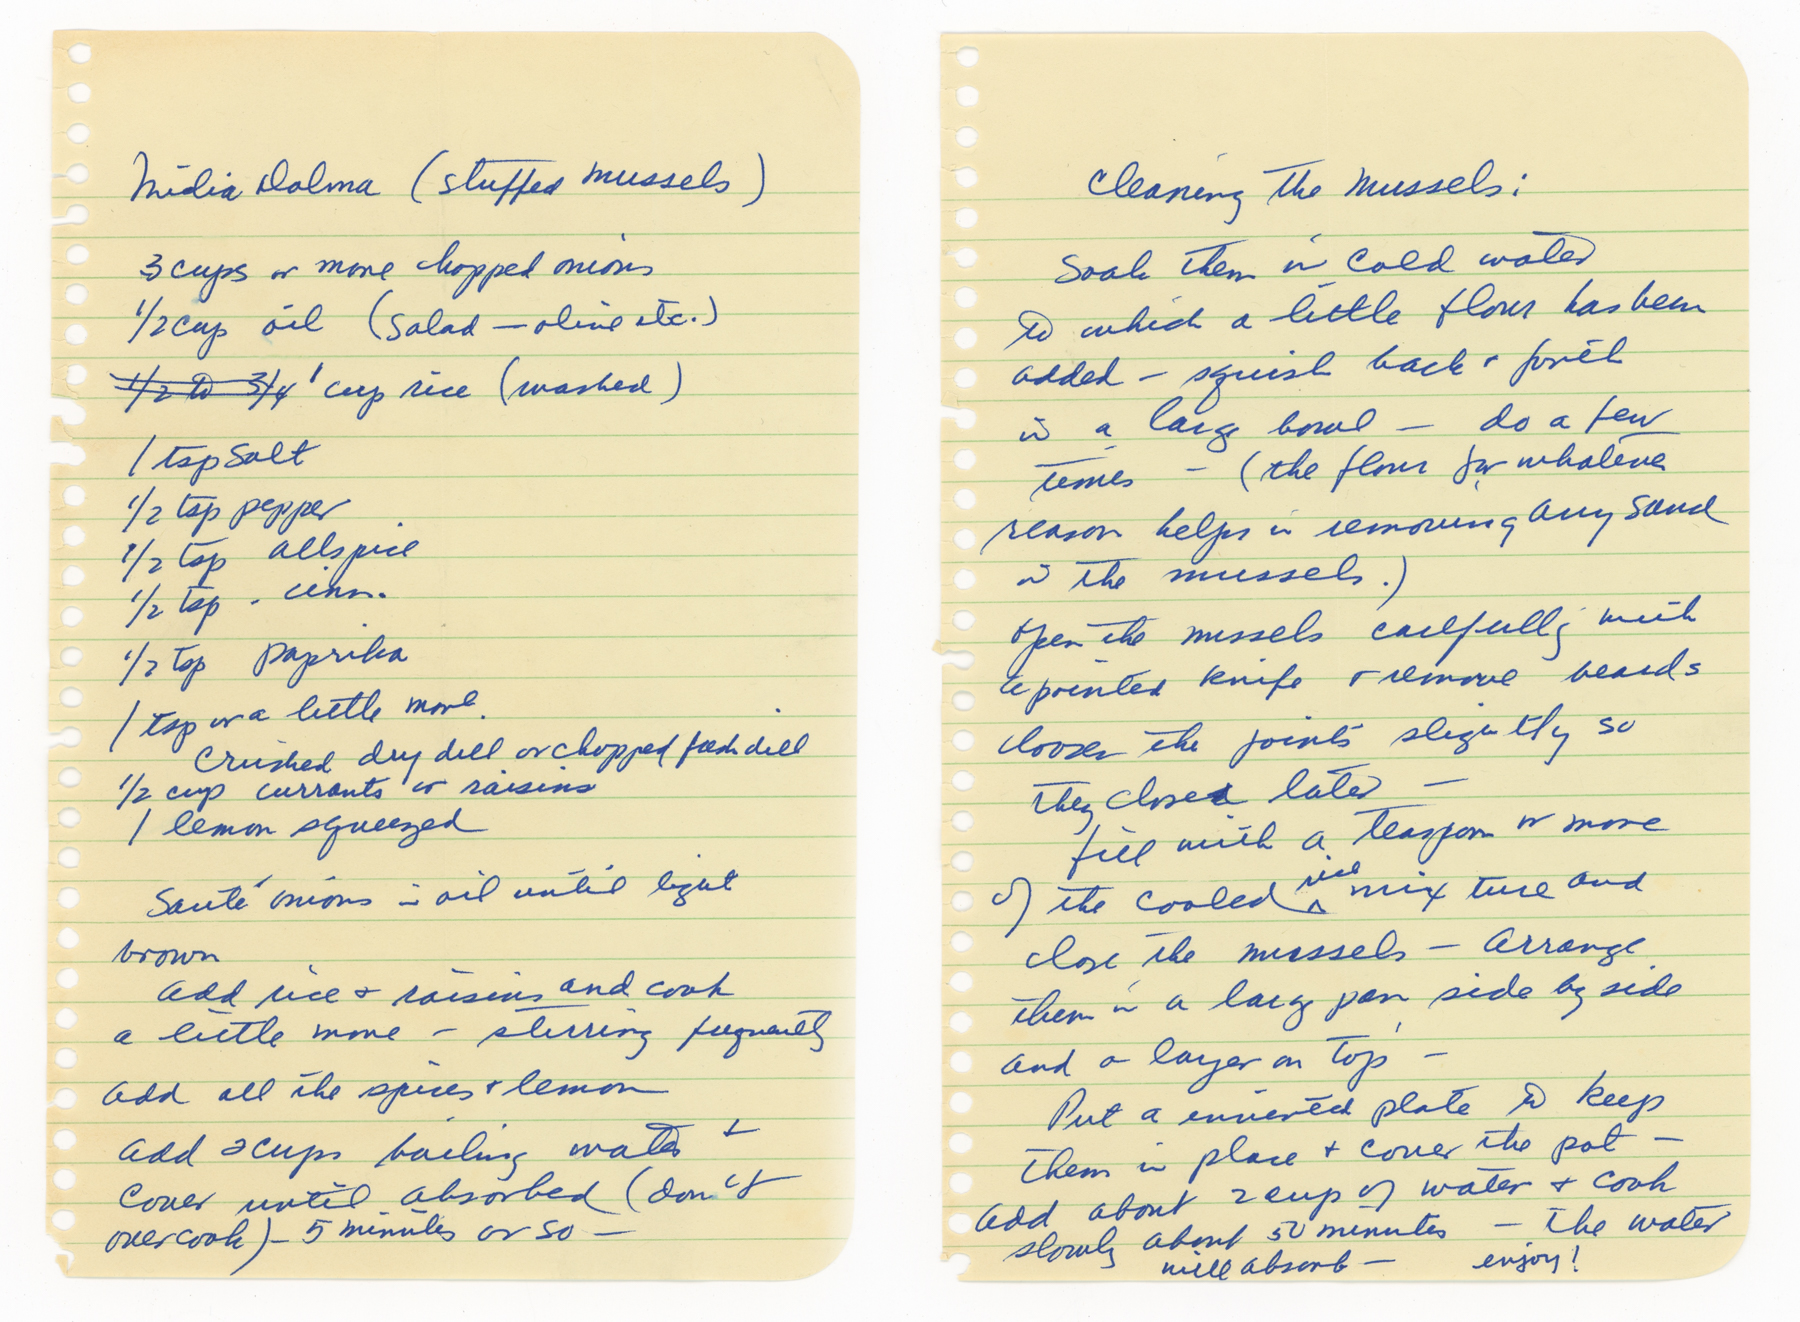 Midia Dolma (stuffed mussels)
3 cups or more chopped onions
1/2 cup oil (salad — olive etc.)
1/2 to 3/4 1 cup rice (washed)
1 tsp salt
1/2 tsp pepper
1/2 tsp allspice
1/2 tsp. cinn.
1/2 tsp paprika
1 tsp or a little more.
crushed dry dill or chopped fresh dill
1/2 cup currants or raisins
1 lemon squeezed
Sauté onions in oil until light
brown
add rice + raisins and cook
a little more – stirring frequently
add all the spices + lemon
add 2 cups boiling water +
cover until absorbed (don't
overcook) – 5 minutes or so —
Cleaning the mussels:
Soak them in cold water
to which a little flour has been
added – squish back + forth
in a large bowl — do a few
times – (the flour for whatever
reason helps in removing any sand
in the mussels.)
open the mussels carefully with
a pointed knife + remove beards
loosen the joints slightly so
they close later —
fill with a teaspoon or more
of the cooled rice mixture and
close the mussels — Arrange
them in a large pan side by side
and a layer on top —
Put a inverted plate to keep
them in place + cover the pot —
add about 2 cup of water + cook
slowly about 50 minutes — the water
will absorb — enjoy!